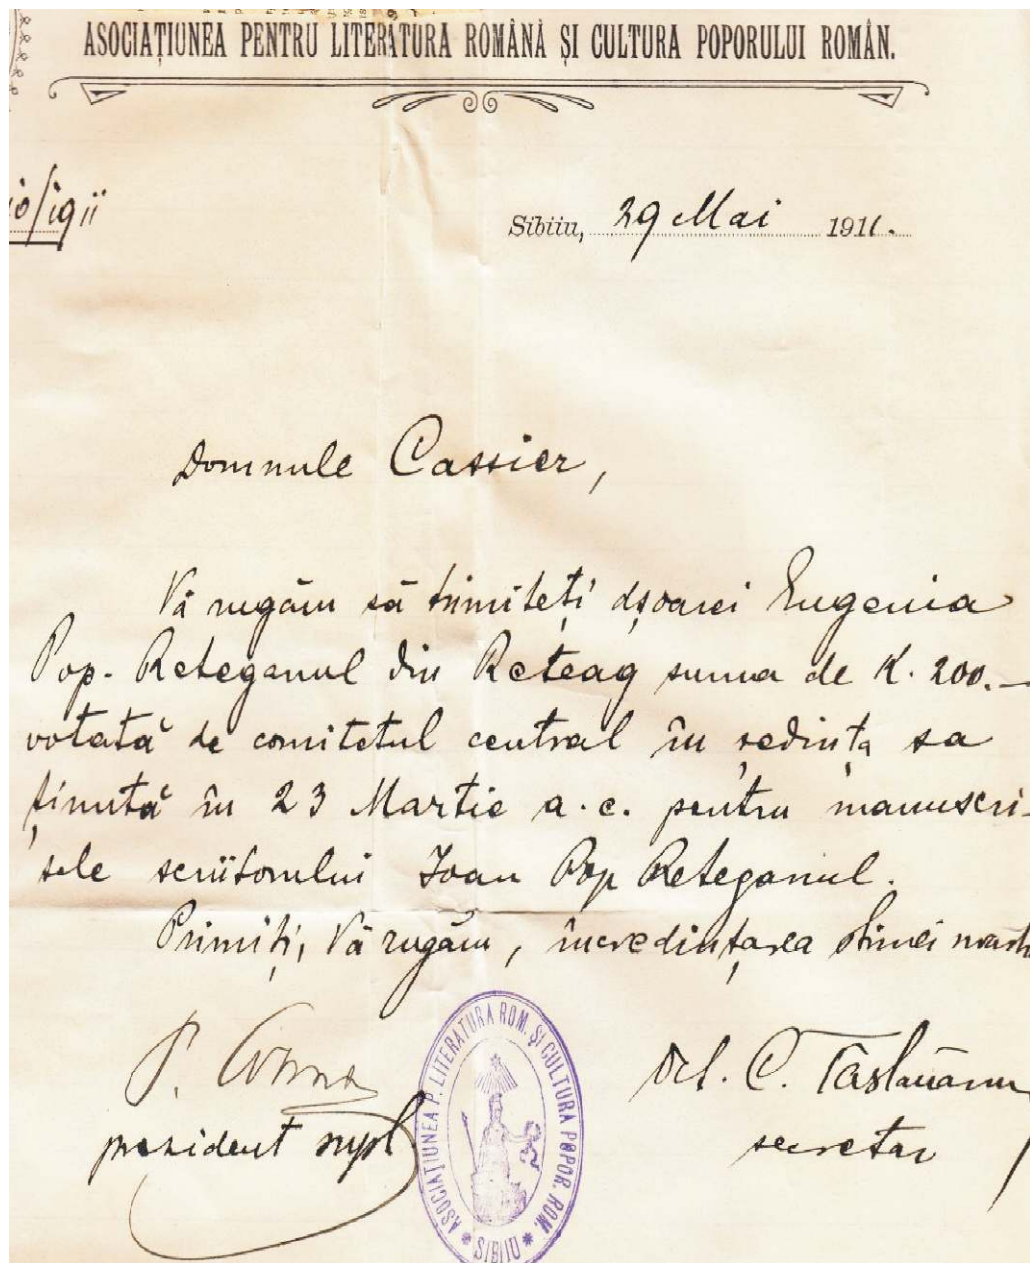 ASOCIAȚIUNEA PENTRU LITERATURA ROMÂNĂ ȘI CULTURA POPORULUI ROMÂN.
10/1911
Sibiiu, 29 Mai 1911.
Domnule Cassier,
Vă rugăm să trimiteți dșoarei Eugenia
Pop. Reteganul din Reteag suma de K. 200.—
votată de comitetul central în ședința sa
ținută în 23 Martie a. c. pentru manuscri-
sele scriitorului Ioan Pop Reteganul.
Primiți, Vă rugăm, încredințarea stimei
P. Cosma
prezident supl.
Oct. C. Tăslăuanu
secretar
ASOCIAȚIUNEA P. LITERATURA ROM. ȘI CULTURA POPOR. ROM.
* SIBIIU *